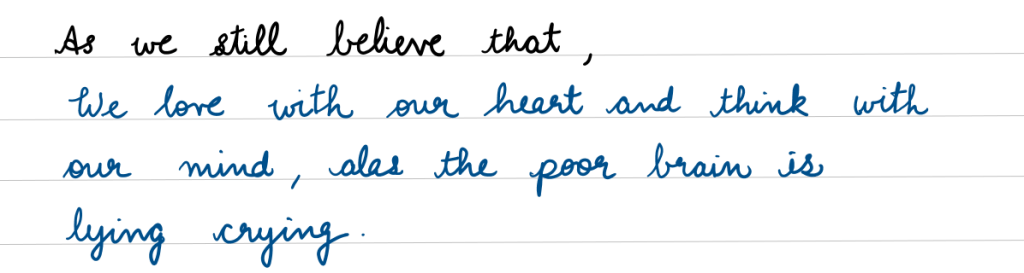 As we still believe that,
We love with our heart and think with
our mind, alas the poor brain is
lying crying.